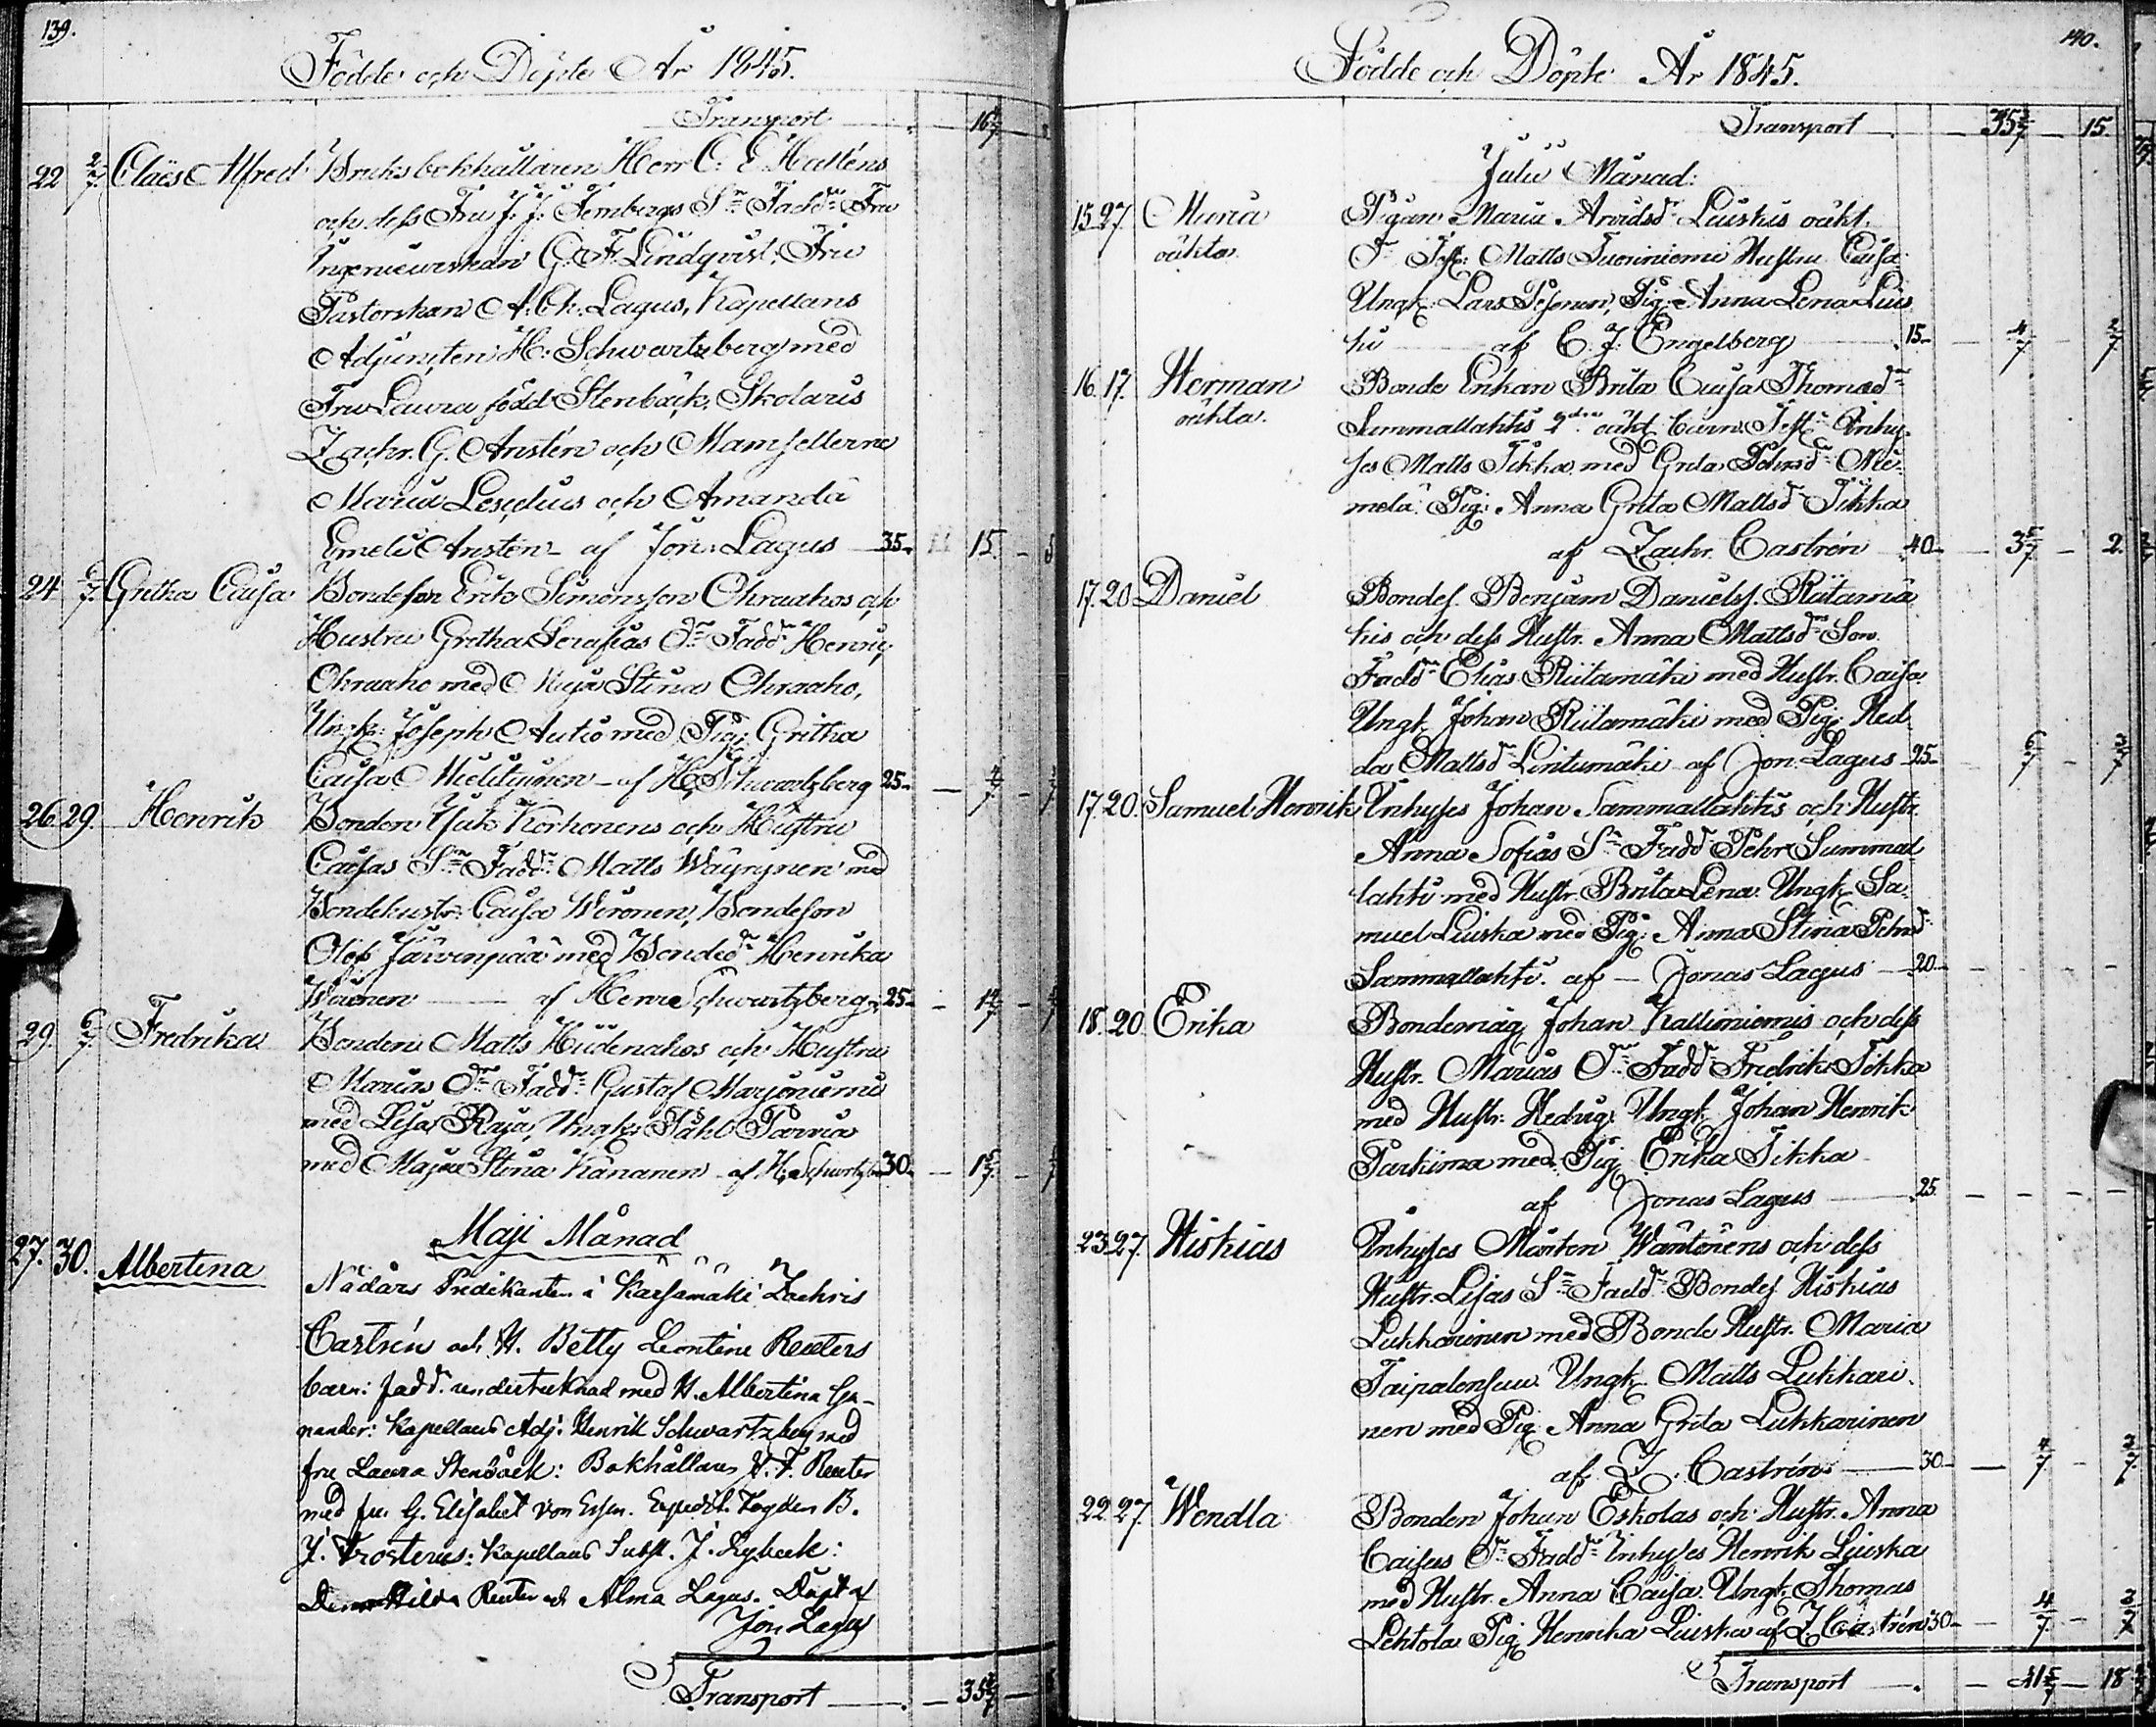 139.
Födde och Döpte År 1845.
Transport 16 4/7
22 2/7. Claës Alfred Bruksbokhållaren Herr C. E. Hallens
och dess Fru J. J. Fernbergs Sn Faddr Fru
Ingenieurskan C. F. Lindqvist, Fru
Pastorskan A. Ch. Lagus, Kapellans
Adjuncten H. Schwartzberg med
Fru Laura född Stenbäck, Skolaris
Zachr. G. Ansten och Mamsellerne
Maria Lescelius och Amanda
Emeli Ansten af Jon. Lagus 35. 15.
24 6/7. Gretha Caisa Bondeson Erik Simonsson Ohraahos och
Hustru Gretha Serafias Dr Faddr Henric
Ohraaho med Maja Stina Ohraaho,
Ungk. Joseph Autio med Pig: Gretha
Caisa Mielitynen af H. Schwartzberg 25. 4/7
26 29. Henrik Bonden Isak Korhonens och Hustru
Caisas Sn Faddr Matts Wäyrynen med
Bondehustr: Caisa Wironen, Bondeson
Olof Järvenpää med Bonded. Henrika
Wironen af Henr Schwartzberg 25.
29. 6/7. Fredrika Bonden Matts Hiidenahos och Hustru
Marias Dr Faddr Gustaf Marjoniemi
med Lisa Raja, Ungk. Påhl Parvia
med Maja Stina Känänen af H. Schwartzb 30. 1 5/7.
Maji Månad
27. 30. Albertina Nådårs Predikanten i Kärsämäki Zachris
Castrén och H. Betty Leontine Reuters
barn: fadd. undertecknad med H. Albertina Ga-
nander: Kapellans Adj. Henrik Schwartzberg med
fru Laura Stenbäck: Bokhållaren V. F. Reuter
med fru G. Elisabet von Essen. Expedit. Fogden B.
J. Frosterus: Kapellans Subst. J. Rybeck:
Hilda Reuter och Alma Lagus. Döpt af
Jon: Lagus
Transport 35 2/7
140.
Födde och Döpte År 1845.
Transport 35 2/7 15
Julii Månad:
15 27. Maria Pigan Maria Arvidsdr Liuskis oäkt.
oäkta. Dr Test: Matts Tuoriniemi Hustru Caisa
Ungk: Lars Pesonen, Pig: Anna Lena Lius
ki af C. J. Engelberg 15. 4/7 2/7
16. 17. Herman Bonde Enkan Brita Caisa Thomasdr
oäkta. Sammallahtis 2dra oäkt. barn Test: Inhy-
ses Matts Tikka med Greta Pehrsdr Nie-
melä. Pig: Anna Greta Mattsd Tikka
af Zachr. Castrén 40 3 5/7 2.
17. 20 Daniel Bondes. Benjam Danielss. Riitamä
kis och dess Hustr. Anna Mattsdr Son
Faddr Elias Riitamäki med Hustr. Caisa
Ungk. Johan Riitamäki med Pig: Hed-
da Mattsd Lintumäki af Jon. Lagus 25. 6/7 3/7
17. 20. Samuel Henrik Inhyses Johan Sammallahtis och Hustr.
Anna Sofias Sn Faddr Pehr Sammal
lahti med Hustr. Brita Lena. Ungk. Sa-
muel Liuska med Pig: Anna Stina Pehrsd
Sammallahti. af Jonas Lagus 20
18. 20 Erika Bondemåg Johan Kallioniemis och dess
Hustr. Marias Dr Faddr Fredrik Tikka
med Hustr. Hedvig. Ungk. Johan Henrik
Parkima med Pig: Erika Tikka
af Jonas Lagus 25.
23 27. Hiskias Inhyses Mårten Wäntönens och dess
Hustr. Lisas Sn Faddr Bondes. Hiskias
Lukkarinen med Bonde Hustr. Maria
Taipalensuu. Ungk. Matts Lukkari-
nen med Pig: Anna Greta Lukkarinen
af Z. Castrén 30 4/7 2/7
22 27. Wendla Bonden Johan Eskolas och Hustr. Anna
Caisas Dr Faddr Inhyses Henrik Liuska
med Hustr. Anna Caisa. Ungk. Thomas
Lehtola Pig: Henrika Liuska af Z. Castrén 30 4/7 2/7
Transport 41 5/7 18